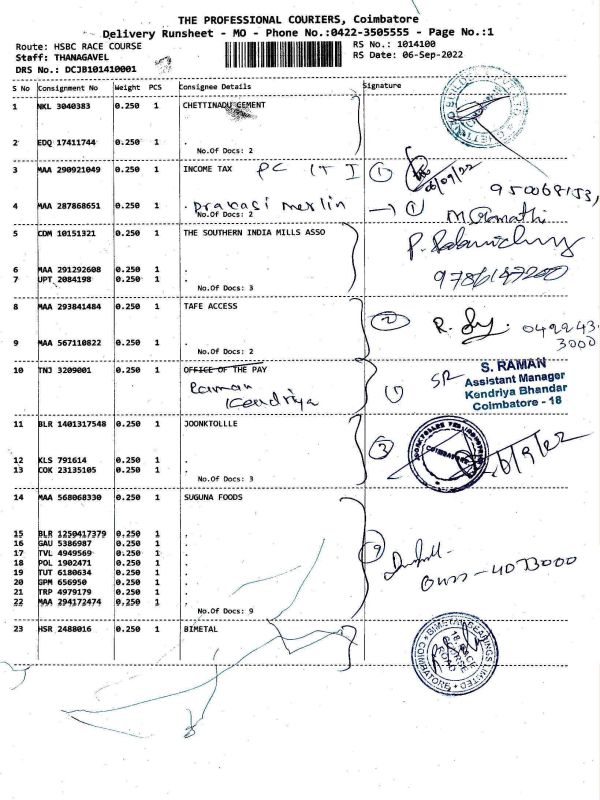 THE PROFESSIONAL COURIERS, Coimbatore
Delivery Runsheet - MO - Phone No.:0422-3505555 - Page No.:1
Route: HSBC RACE COURSE
RS No.: 1014100
Staff: THANAGAVEL
RS Date: 06-Sep-2022
DRS No.: DCJB101410001
S No Consignment No Weight PCS Consignee Details Signature
1 NKL 3040383 0.250 1 CHETTINADU CEMENT
2 EDQ 17411744 0.250 1 .
No.Of Docs: 2
3 MAA 290921049 0.250 1 INCOME TAX PC ITI 1
06/09/22
4 MAA 287868651 0.250 1 . prakasi merlin → 1
No.Of Docs: 2
5 CDM 10151321 0.250 1 THE SOUTHERN INDIA MILLS ASSO
6 MAA 291292608 0.250 1 .
7 UPT 2084198 0.250 1 .
No.Of Docs: 3
8 MAA 293841484 0.250 1 TAFE ACCESS
2 R.
3000
9 MAA 567110822 0.250 1 .
No.Of Docs: 2
10 TNJ 3209001 0.250 1 OFFICE OF THE PAY
Raman
Kendriya
1 SR
S. RAMAN
Assistant Manager
Kendriya Bhandar
Coimbatore - 18
11 BLR 1401317548 0.250 1 JOONKTOLLLE
3
COIMBATORE
6/9/22
12 KLS 791614 0.250 1 .
13 COK 23135105 0.250 1 .
No.Of Docs: 3
14 MAA 568068330 0.250 1 SUGUNA FOODS
15 BLR 1250417379 0.250 1 .
16 GAU 5386987 0.250 1 .
17 TVL 4949569 0.250 1 .
18 POL 1902471 0.250 1 .
19 TUT 6180634 0.250 1 .
20 GPM 656950 0.250 1 .
21 TRP 4979179 0.250 1 .
22 MAA 294172474 0.250 1 .
No.Of Docs: 9
9
23 HSR 2488016 0.250 1 BIMETAL
BIMETAL BEARINGS LIMITED
COIMBATORE
18, RACE
COURSE
ROAD